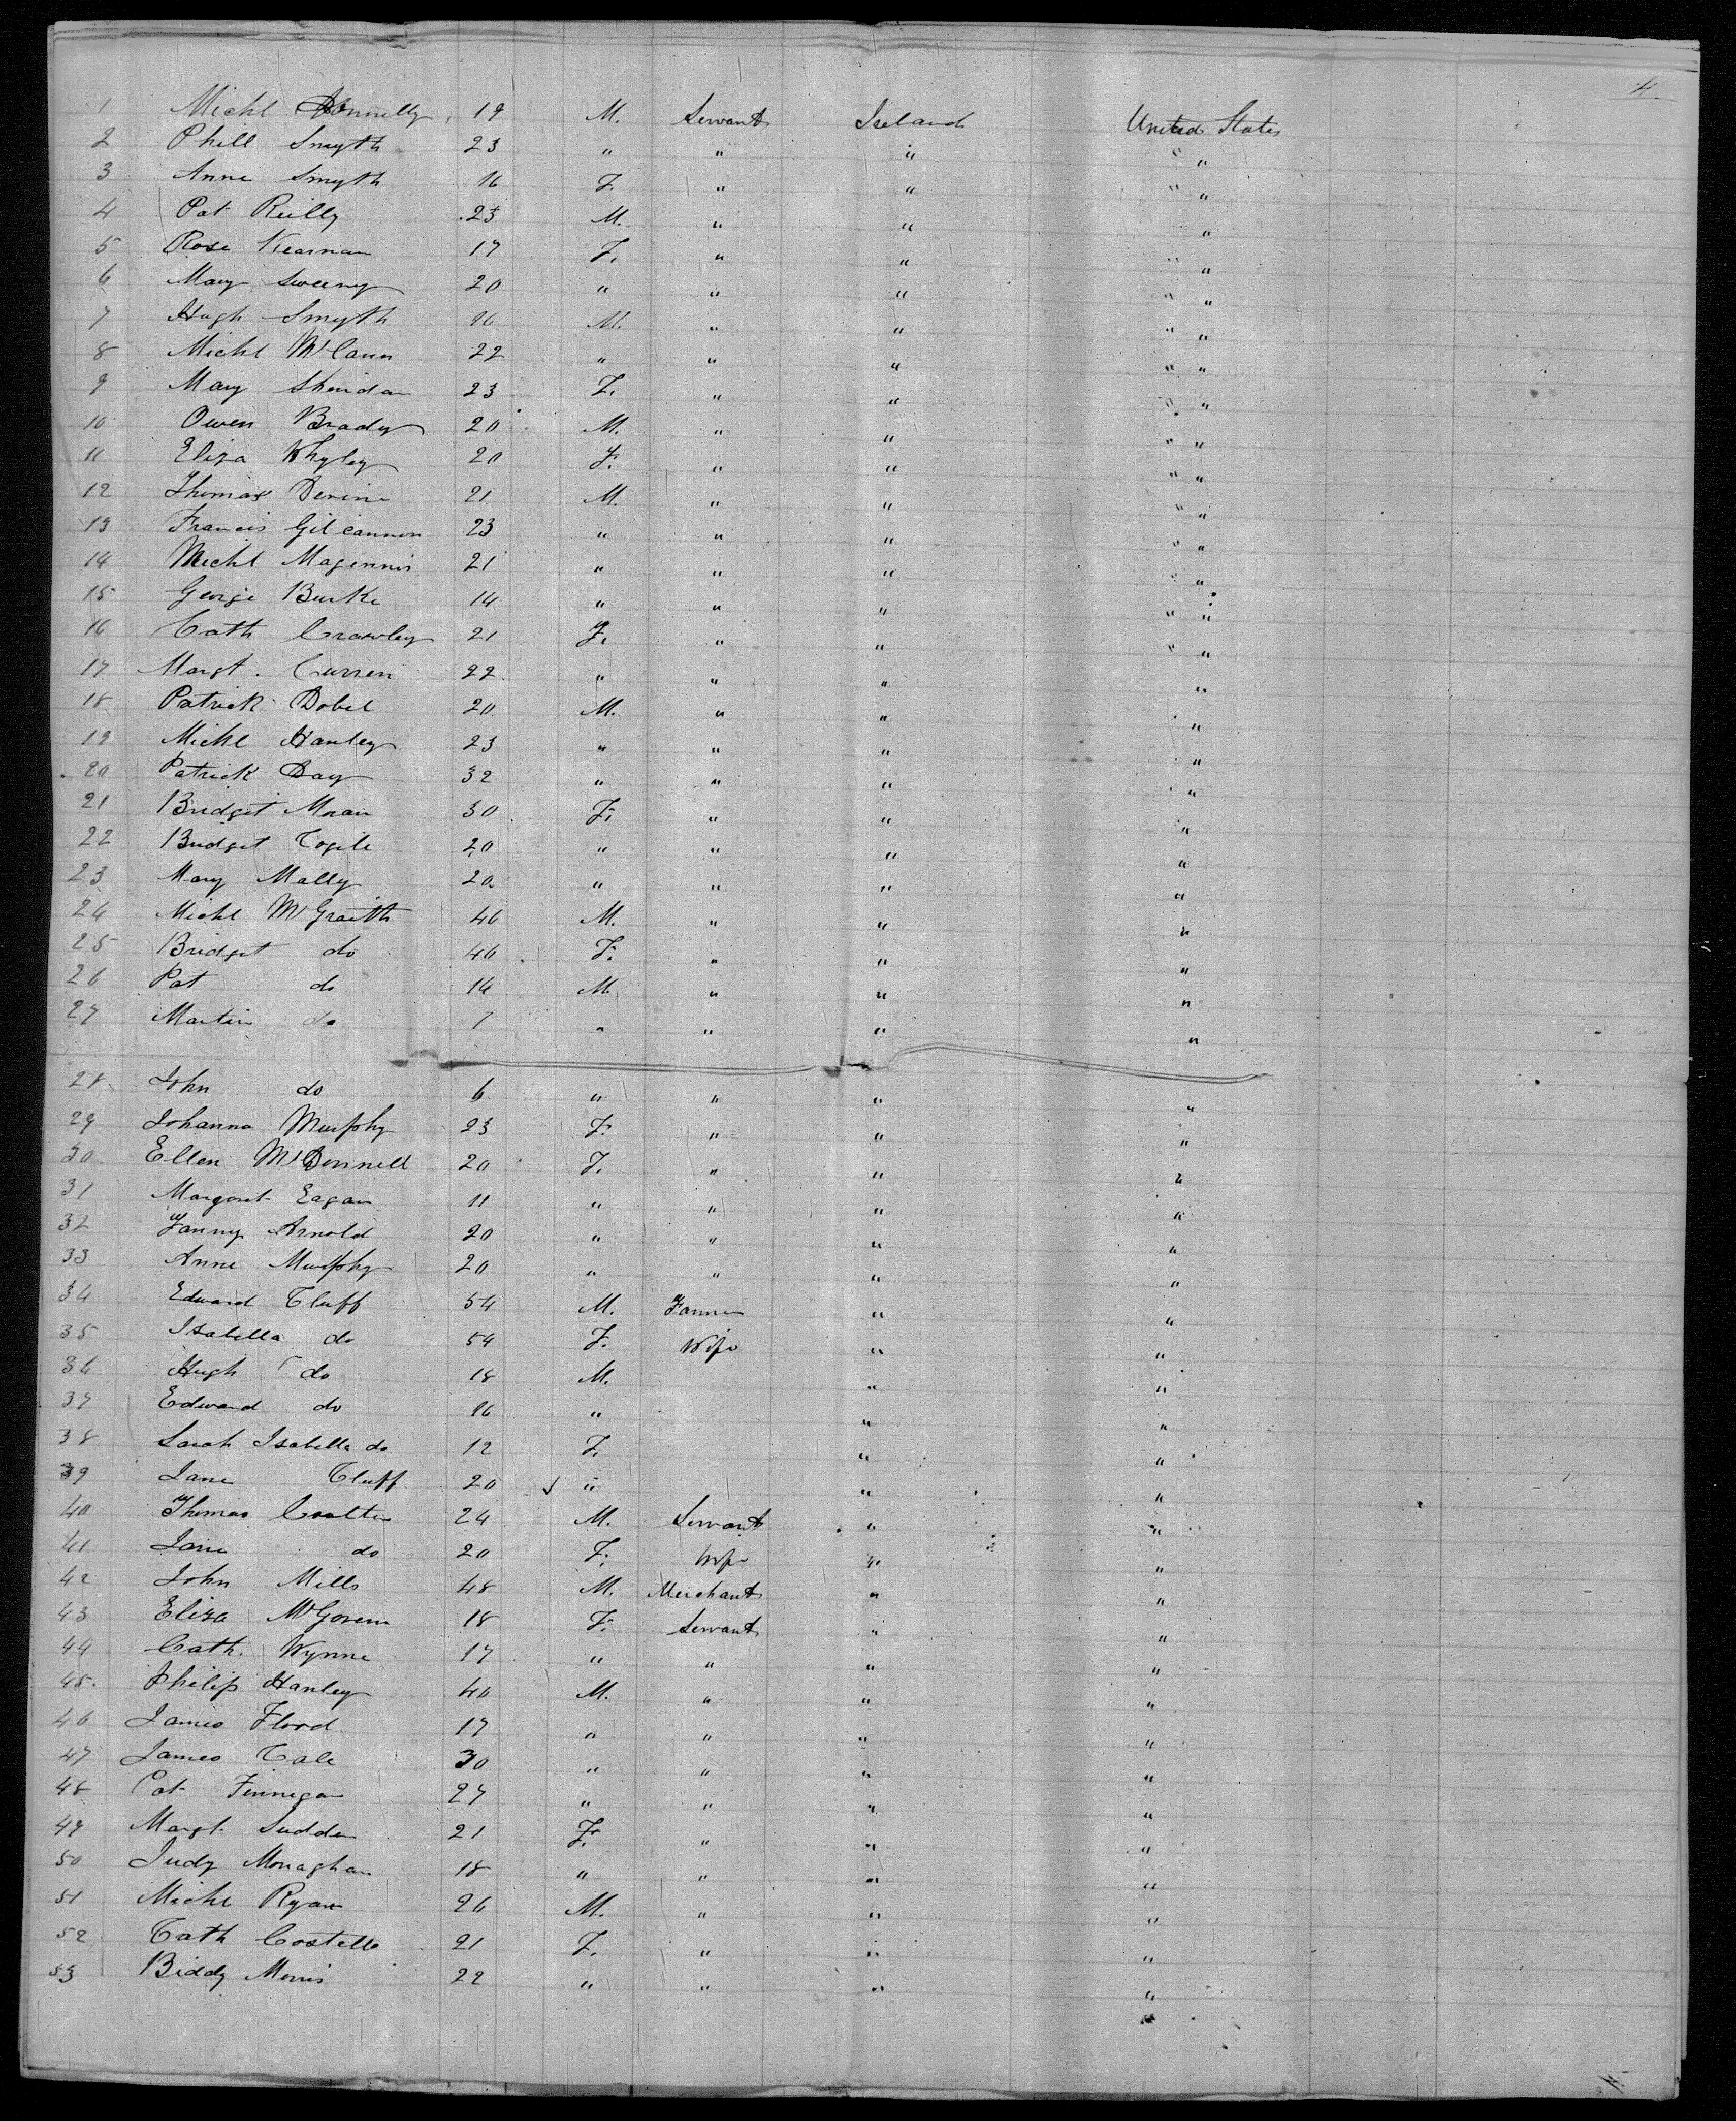 4
1 Michl Donnelly 19 M. Servant Ireland United States
2 Phill Smyth 23 " " " " "
3 Anne Smyth 16 F. " " " "
4 Pat Reilly 23 M. " " " "
5 Rose Kearnan 17 F. " " " "
6 Mary Sweeny 20 " " " " "
7 Hugh Smyth 16 M. " " " "
8 Michl McCann 22 " " " " "
9 Mary Sheridan 23 F. " " " "
10 Owen Brady 20 M. " " " "
11 Eliza Whyley 20 F. " " " "
12 Thomas Devine 21 M. " " " "
13 Francis Gilcannon 23 " " " " "
14 Michl Magennis 21 " " " " "
15 George Burke 14 " " " " "
16 Cath Crawley 21 F. " " " "
17 Margt. Curren 22 " " " "
18 Patrick Dobel 20 M. " " "
19 Michl Hanley 23 " " " "
20 Patrick Day 32 " " " "
21 Bridget Moran 30 F. " " "
22 Bridget 20 " " " "
23 Mary Mally 20 " " " "
24 Michl McGraith 40 M. " " "
25 Bridget do 40 F. " " "
26 Pat do 14 M. " " "
27 Martin do 7 " " " "
28 John do 6 " " " "
29 Johanna Murphy 23 F. " " "
30 Ellen McDonnell 20 F. " " "
31 Margaret Eagan 11 " " " "
32 Fanny Arnold 20 " " " "
33 Anne Murphy 20 " " " "
34 Edward Cluff 54 M. Farmer " "
35 Isabella do 54 F. Wife " "
36 Hugh do 18 M. " "
37 Edward do 16 " " "
38 Sarah Isabella do 12 F. " "
39 Jane Cluff 20 " " "
40 Thomas Coulter 24 M. Servant " "
41 Jane do 20 F. Wife " "
42 John Mills 48 M. Merchant " "
43 Eliza McGovern 18 F. Servant " "
44 Cath. Wynne 17 " " " "
45. Philip Hanley 40 M. " " "
46 James Flood 17 " " " "
47 James 30 " " " "
48 Pat Finnegan 27 " " " "
49 Margt. 21 F. " " "
50 Judy Monaghan 18 " " " "
51 Michl Ryan 26 M. " " "
52 Cath Costello 21 F. " " "
53 Biddy Morris 22 " " " "